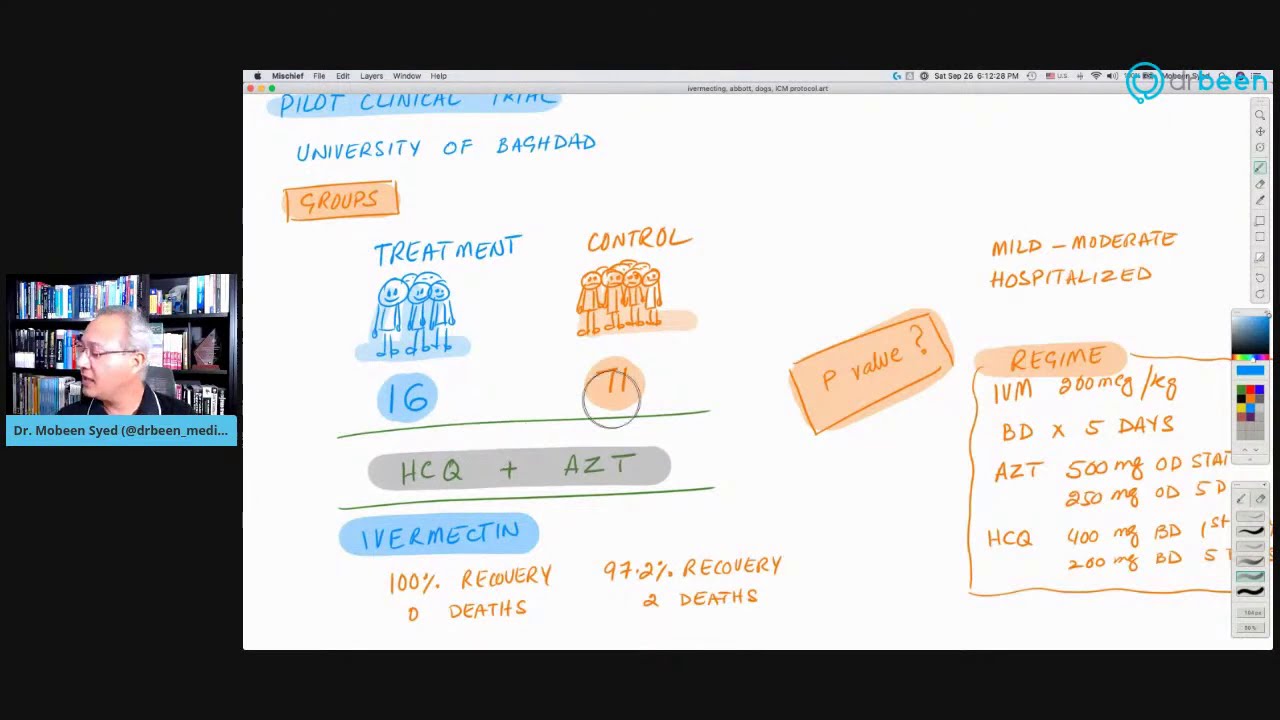 Mischief File Edit Layers Window Help
Sat Sep 26 6:12:28 PM Mobeen Syed
drbeen
ivermecting, abbott, dogs, iCM protocol.art
PILOT CLINICAL TRIAL
UNIVERSITY OF BAGHDAD
GROUPS
TREATMENT CONTROL
16 71
HCQ + AZT
IVERMECTIN
100% RECOVERY 97.2% RECOVERY
0 DEATHS 2 DEATHS
P value?
MILD - MODERATE
HOSPITALIZED
REGIME
IVM 200mcg/kg
BD x 5 DAYS
AZT 500mg OD STAT
250 mg OD 5 D
HCQ 400 mg BD 1st
200 mg BD 5
Dr. Mobeen Syed (@drbeen_medi...